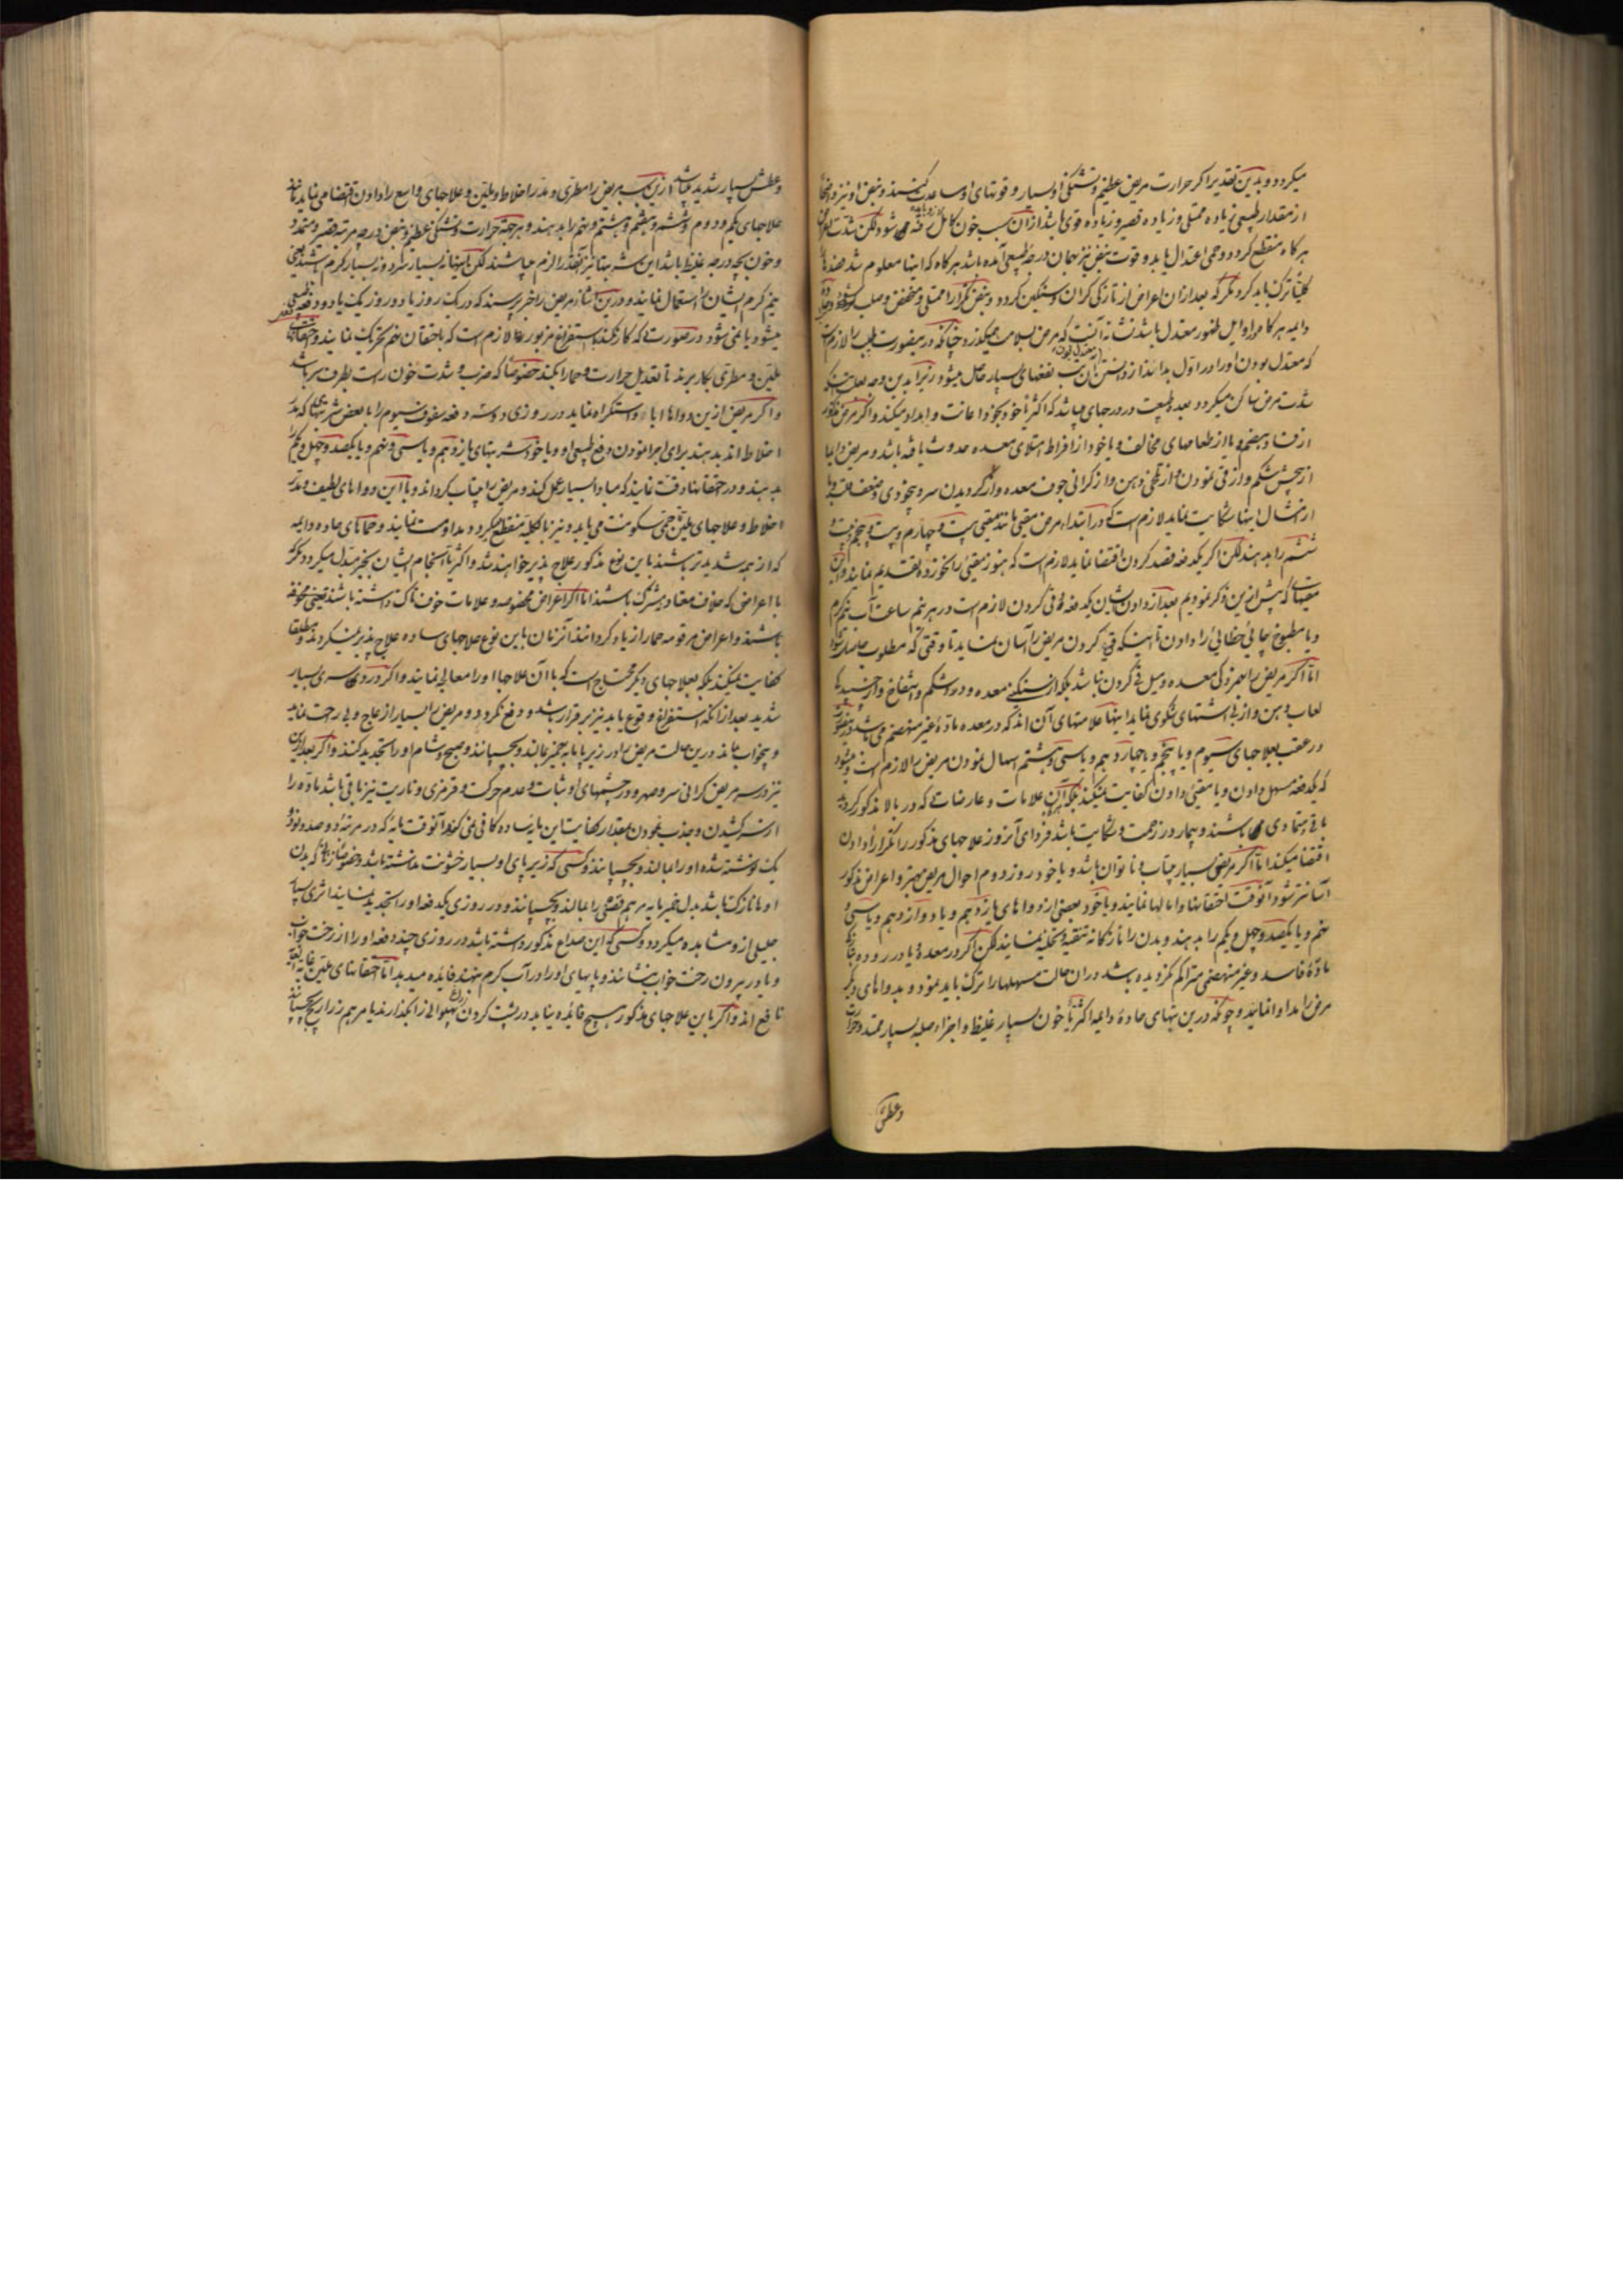 میکردد و بدین تقدیر اکر حرارت مریض عظیم و تشنکی او بسیار و قوتهای او مساعدت کنند و نبض او نیز
از مقدار طبیعی زیاده ممتلی و زیاده قصیر و زیاده قوی باشد از ان سبب خون کامل شود لکن شدت
هرکاه منقطع کردد و حمی اعتدال یابد و قوت نبض نیز همان درجه طبیعی آمده باشد هرکاه که اینها معلوم شد
کلیتا ترک باید کرد مکر که بعد از ان اعراض از تازکی کران و سنکین کردد و نبض مکررا ممتلی و منخفض و صلب
دایمه هرکاه در اوایل ظهور معتدل باشد نشانه آنست که مرض بسلامت میکذرد چنانکه درینصورت طبیب را لازم است
که معتدل بودن او را در اول بداند از دانستن آن سبب نفعهای بسیار حاصل میشود زیرا بدین وجه
شدت مرض ساکن میکردد بعده طبیعت در درجهای میباشد که اکثریا خود بخود اعانت و امداد میکند و اکر مرض مذکور
از فساد هضم و یا از طعامهای مخالف و یا خود از افراط امتلای معده حدوث یافته باشد و مریض دایما
از پیچش شکم و از قی نمودن و از تلخی دهن و از کرانی جوف معده و از کردیدن سر و بیخودی و ضعف قلب و یا
از امثال اینها شکایت نماید لازم است که در ابتداء مرض مقیئی مانند مقیئی بیست و چهارم و بیست و پنجم و بیست و
ششم را بدهند لکن اکر یکدفعه فصد کردن اقتضا نماید لازم است که هنوز مقیئی را نخورده تقدیم نمایند و این
مقیئهای که پیش ازین ذکر نمودیم بعد از دادن ایشان یکدفعه قی کردن لازم است و در هر نیم ساعت آب نیم کرم
و یا مطبوخ چائی خطائی را دادن تا اینکه قی کردن مریض را آسان نماید تا وقتی که مطلوب حاصل شود
اما اکر مریض را بهر زدکی معده و میل قی کردن نباشد بلکه از سنکینی معده و درد شکم و انتفاخ و از چسپیدکی
لعاب دهن و از بی اشتهای شکوی نماید اینها علامتهای آن اند که در معده مادهٔ غیر منهضم می باشد
در عقب بعلاجهای سیوم و یا پنجم و یا چهاردهم و یا سی و هشتم اسهال نمودن مریض را لازم است
که یکدفعه مسهل دادن و یا مقیئی دادن کفایت نمیکند بلکه اکر آن علامات و عارضات که در بالا مذکور کردید
باقی متمادی باشند و بیمار در زحمت و شکایت باشد فردای آنروز علاجهای مذکور را مکررا دادن
اقتضا میکند اما اکر مریض بسیار بیتاب و ناتوان باشد و یا خود روز دوم احوال مریض بهتر و اعراض مذکور
آسانتر شود آنوقت احتقانها و امالها نمایند و یا خود بعضی از دواهای یازدهم و یا دوازدهم و یا سی و
نهم و یا یکصد و چهل و یکم را بدهند و بدن را نازکانه تنقیه و تخلیه نمایند لکن اکر در معده و یا در روده
مادهٔ فاسد و غیر منهضمی متراکم نکردیده باشد در ان حالت مسهلها را ترک باید نمود و بدواهای دیکر
مرض را مداوا نمایند و چونکه درین تبهای حادهٔ دایمه اکثریا خون بسیار غلیظ و اجزاء صلبه بسیار ممتد
وعطش
وعطش بسیار شدید میباشد ازین سبب مریض را مطری و مدر اخلاط و ملین و علاجهای واسع را دادن اقتضا می نماید
علاجهای یکم و دوم و ششم و هفتم و هشتم و نهم را بدهند و هرچند حرارت و تشنکی عظیم و نبض در چه مرتبه قصیر و ممتد و
و خون بچه درجه غلیظ باشد این شربتها نیز بآنقدر لازم میباشند لکن اینها نه بسیار سرد و نه بسیار کرم باشند یعنی
نیم کرم ایشان را استعمال نمایند و درین اثنا از مریض را خبر پرسند که در یک روز یا دو روز یک یا دو دفعه
میشود یا نمی شود در صورت که کار نکند باستفراغ مزبور لازم است که باحتقان نهم تحریک نمایند
ملین و مطری بکار برند تا تعدیل حرارت و حما را بکند خصوصا که ضرب و شدت خون راست بطرف سر باشد
و اکر مریض ازین دواها اباء و استکراه نماید در روزی دو سه دفعه سفوف سیوم را با بعض شربتهای که مدر
اخلاط اند بدهند برای اجرا نمودن دفع طبیعی او و یا خود شربتهای یازدهم و یا سی و نهم و یا یکصد و چهل و یکم را
بدهند و در احتقانها دقت نمایند که مبادا بسیار عمل کند و مریض را بیتاب کرداند و با این دواهای لطیف و مدر
اخلاط و علاجهای ملین حمی سکونت می یابد و نیز بالکلیه منقطع میکردد مداومت نمایند و حماهای حاده دایمه
که از همه شدیدتر باشند باین نوع مذکور علاج پذیر خواهند شد و اکثریا انجام ایشان بخیر مبدل میکردد مکر
با اعراض که خلاف معتاد مشترک باشند اما اکر اعراض مخصوصه و علامات خوف ناک داشته باشند یعنی مخوفه
باشند و اعراض مرقومه حما را زیاد کردانند آنزمان باین نوع علاجهای ساده علاج پذیر نمیکردند و مطلقا
کفایت نمیکند بلکه بعلاجهای دیکر محتاج است که با آن علاجها او را معالجه نمایند و اکر درد سری بسیار
شدید بعد از آنکه استفراغ وقوع یابد نیز برقرار باشد و دفع نکردد و مریض را بسیار ازعاج و بی راحت نماید
و بیخواب ماند درین حالت مریض را در زیر پا مایه خمیر بمالند و بچسپانند و صبح و شام او را تجدید کنند و اکر بعد ازین
نیز در سر مریض کرانی سر و صهر و در چشمهای او ثبات و عدم حرکت و قرمزی و ناریت نیز باقی باشد ماده را
از سر کشیدن و جذب نمودن بمقدار کفایت این مایه ساده کافی نمی کند آنوقت مایه که در مرتبهٔ دو صد و نود و
یک نوشته شده او را بمالند و بچسپانند و کسی که زیر پای او بسیار خشونت نداشته باشد و خصوصا زنانی که بدن
او نازک باشد بدل خمیر مایه مرهم فضهٔ را بمالند و بچسپانند و در روزی یکدفعه او را تجدید نمایند اثری بسیار
جلیل از و مشاهده میکردد و کسی که این صداع مذکور داشته باشد در روزی چند دفعه او را از رخت خواب
و یا در بیرون رخت خواب بنشانند و پایهای او را در آب کرم نهند فایده میدهد اما احتقانهای ملین غایه
نافع اند و اکر باین علاجهای مذکور هیچ فائده نیابد در پشت کردن بهلوانی زا بکذارند یا مرهم زراریح بچسپانند